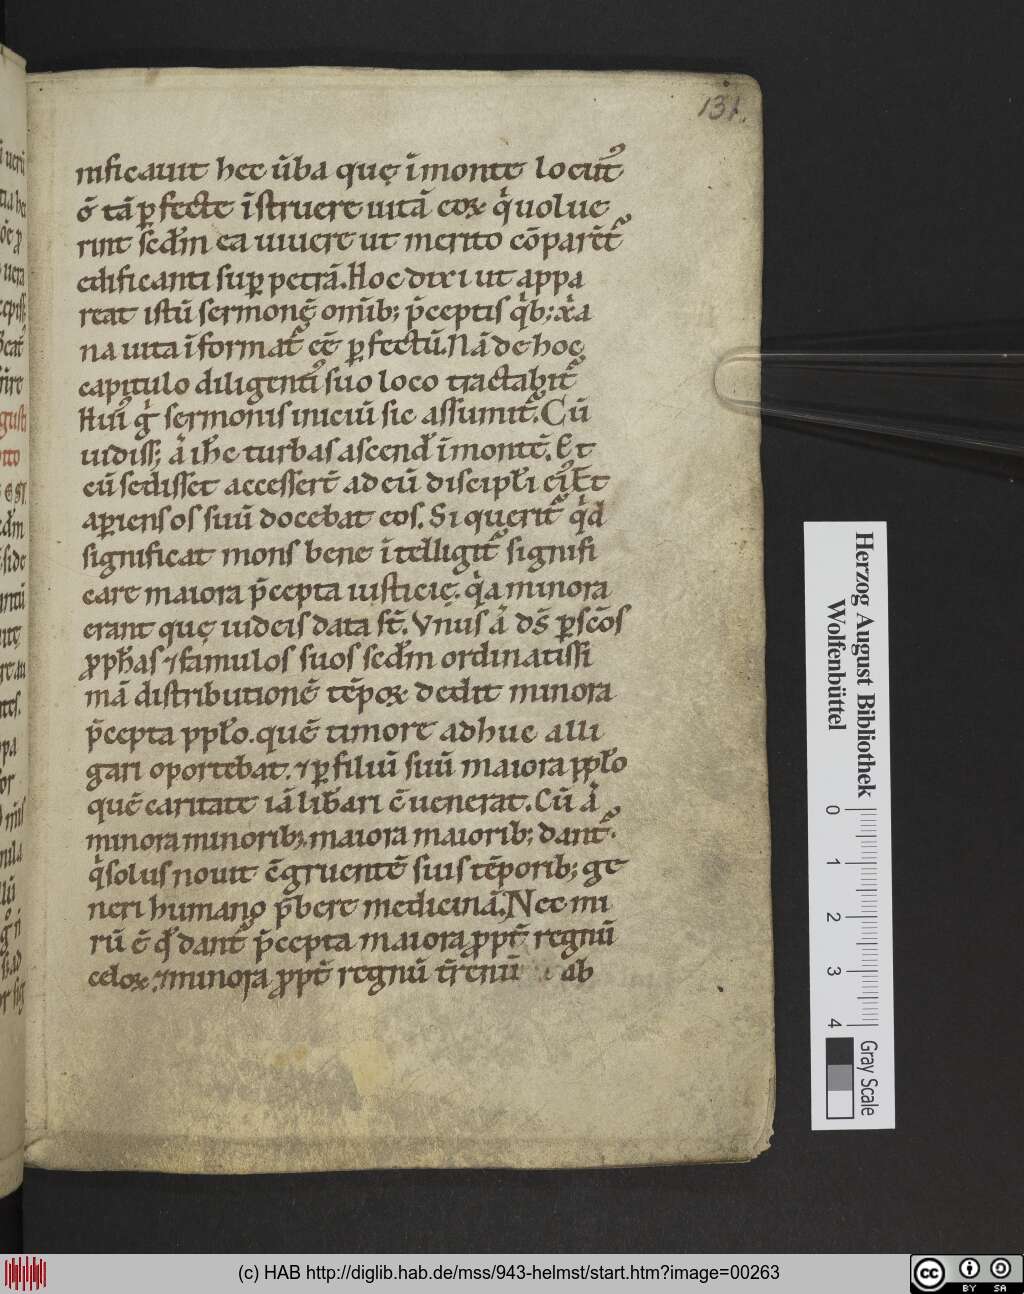 131.
nificauit hec ũba quę ĩ monte locut᷒
ẽ tã ꝑfecte ĩstruere uitã eoꝝ q̍ uolue
rint sc̃dm̃ ea uiuere ut merito cõparẽt᷒
edificanti suꝑ petrã. Hoc dixi ut appa
reat istũ sermonẽ om̃ib; p̃ceptis q̍b; xp̃ia
na uita ĩformat᷒ eẽ ꝑfectũ. Nã de hoc
capitulo diligenti᷒ suo loco tractabit᷒
Hui᷒ g̍ sermonis iniciũ sic assumit᷒. Cũ
uidiss; aũ ih̃c turbas ascend̃ ĩ montẽ. Et
cũ sedisset accessert̃ ad eũ discipl̃i ei᷒ ⁊
aꝑiens os suũ docebat eos. Si querit᷒ q̍d
significat mons bene ĩtelligit᷒ signifi
care maiora p̃cepta iusticię. q̍a minora
erant quę iudeis data st̃. Vnus aũ ds̃ ꝑ sc̃os
ꝓph̃as ⁊ famulos suos sc̃dm ordinatissi
mã distributionẽ tẽpoꝝ dedit minora
p̃cepta ppl̃o. quẽ timore adhuc alli
gari oportebat. ⁊ ꝑ filiũ suũ maiora ppl̃o
quẽ caritate iã lib̃ari c̃uenerat. Cũ aũ
minora minorib;. maiora maiorib; dant᷒.
q̍ solus nouit c̃gruentẽ suis tẽporib; ge
neri humano p̃bere medicinã. Nec mi
rũ ẽ qd̃ dant᷒ p̃cepta maiora ꝓpt̃ regnũ
celoꝝ. ⁊ minora ꝓpt̃ regnũ t̃renũ ab
Herzog August Bibliothek
Wolfenbüttel
0 1 2 3 4
Gray Scale
(c) HAB http://diglib.hab.de/mss/943-helmst/start.htm?image=00263
cc BY SA